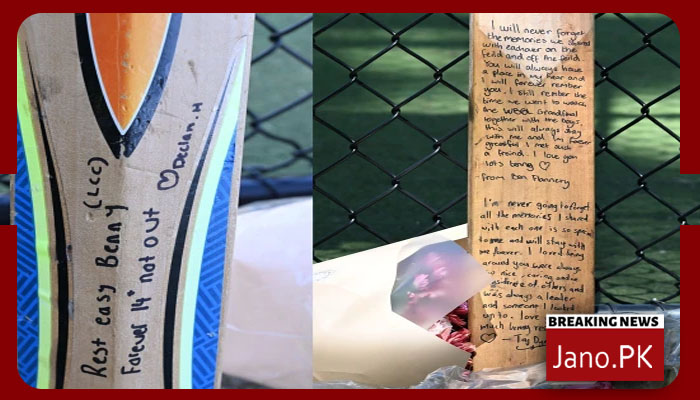 Rest easy Benny (LCC)
Forever 14" not out
♡ Declan.H
I will never forget
the memories we shared
with eachover on the
feild and off the feild.
You will always have
a place in my hear and
I will forever rember
you. I still rember the
time we went to watch
the WBBL Grandfinal
together with the boys,
this will always stay
with me and I'm forever
greatful I met such
a freind. I love you
lots benny ♡
- From Ben Flannery
I'm never going to forget
all the memories I shared
with each one is so special
to me and will stay with
me forever. I loved being
around you were always
so nice, caring and
of others and
was always a leader
and someone I looked
up to. love
much benny
♡
BREAKING NEWS
Jano.PK